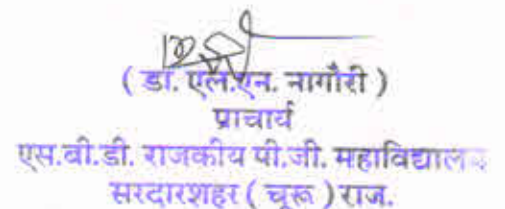 ( डा. एल.एन. नागौरी )
प्राचार्य
एस.बी.डी. राजकीय पी.जी. महाविद्यालय
सरदारशहर ( चूरू ) राज.